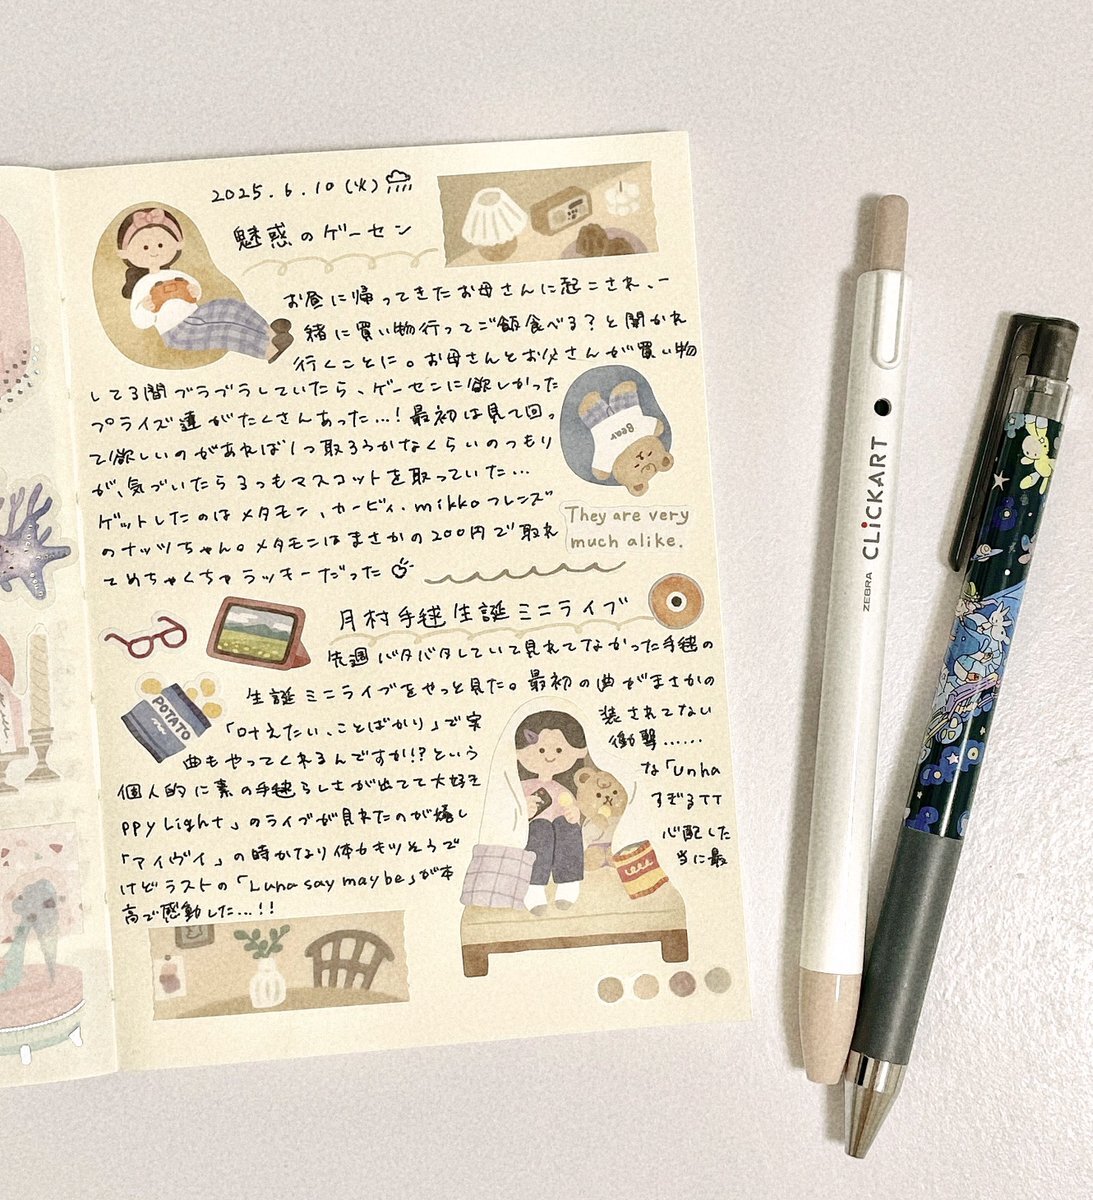 2025.6.10(火)
魅惑のゲーセン
お昼に帰ってきたお母さんに起こされ、一
緒に買い物行ってご飯食べる？と聞かれ
行くことに。お母さんとお父さんが買い物
してる間ブラブラしていたら、ゲーセンに欲しかった
プライズ達がたくさんあった…！最初は見て回っ
て欲しいのがあれば1つ取ろうかなくらいのつもり
が、気づいたら3つもマスコットを取っていた…
ゲットしたのはメタモン、カービィ、mikkoフレンズ
のナッツちゃん。メタモンはまさかの200円で取れ
てめちゃくちゃラッキーだった
Bear
They are very
much alike.
月村手毬生誕ミニライブ
先週バタバタしていて見れてなかった手毬の
生誕ミニライブをやっと見た。最初の曲がまさかの
「叶えたい、ことばかり」で実装されてない
曲もやってくれるんですか!!?という衝撃……
個人的に素の手毬らしさが出てて大好きな「Unha
ppy Light」のライブが見れたのが嬉しすぎるTT
「アイヴイ」の時かなり体力キツそうで心配した
けどラストの「Luna say maybe」が本当に最
高で感動した…!!
POTATO
ZEBRA CLiCKART